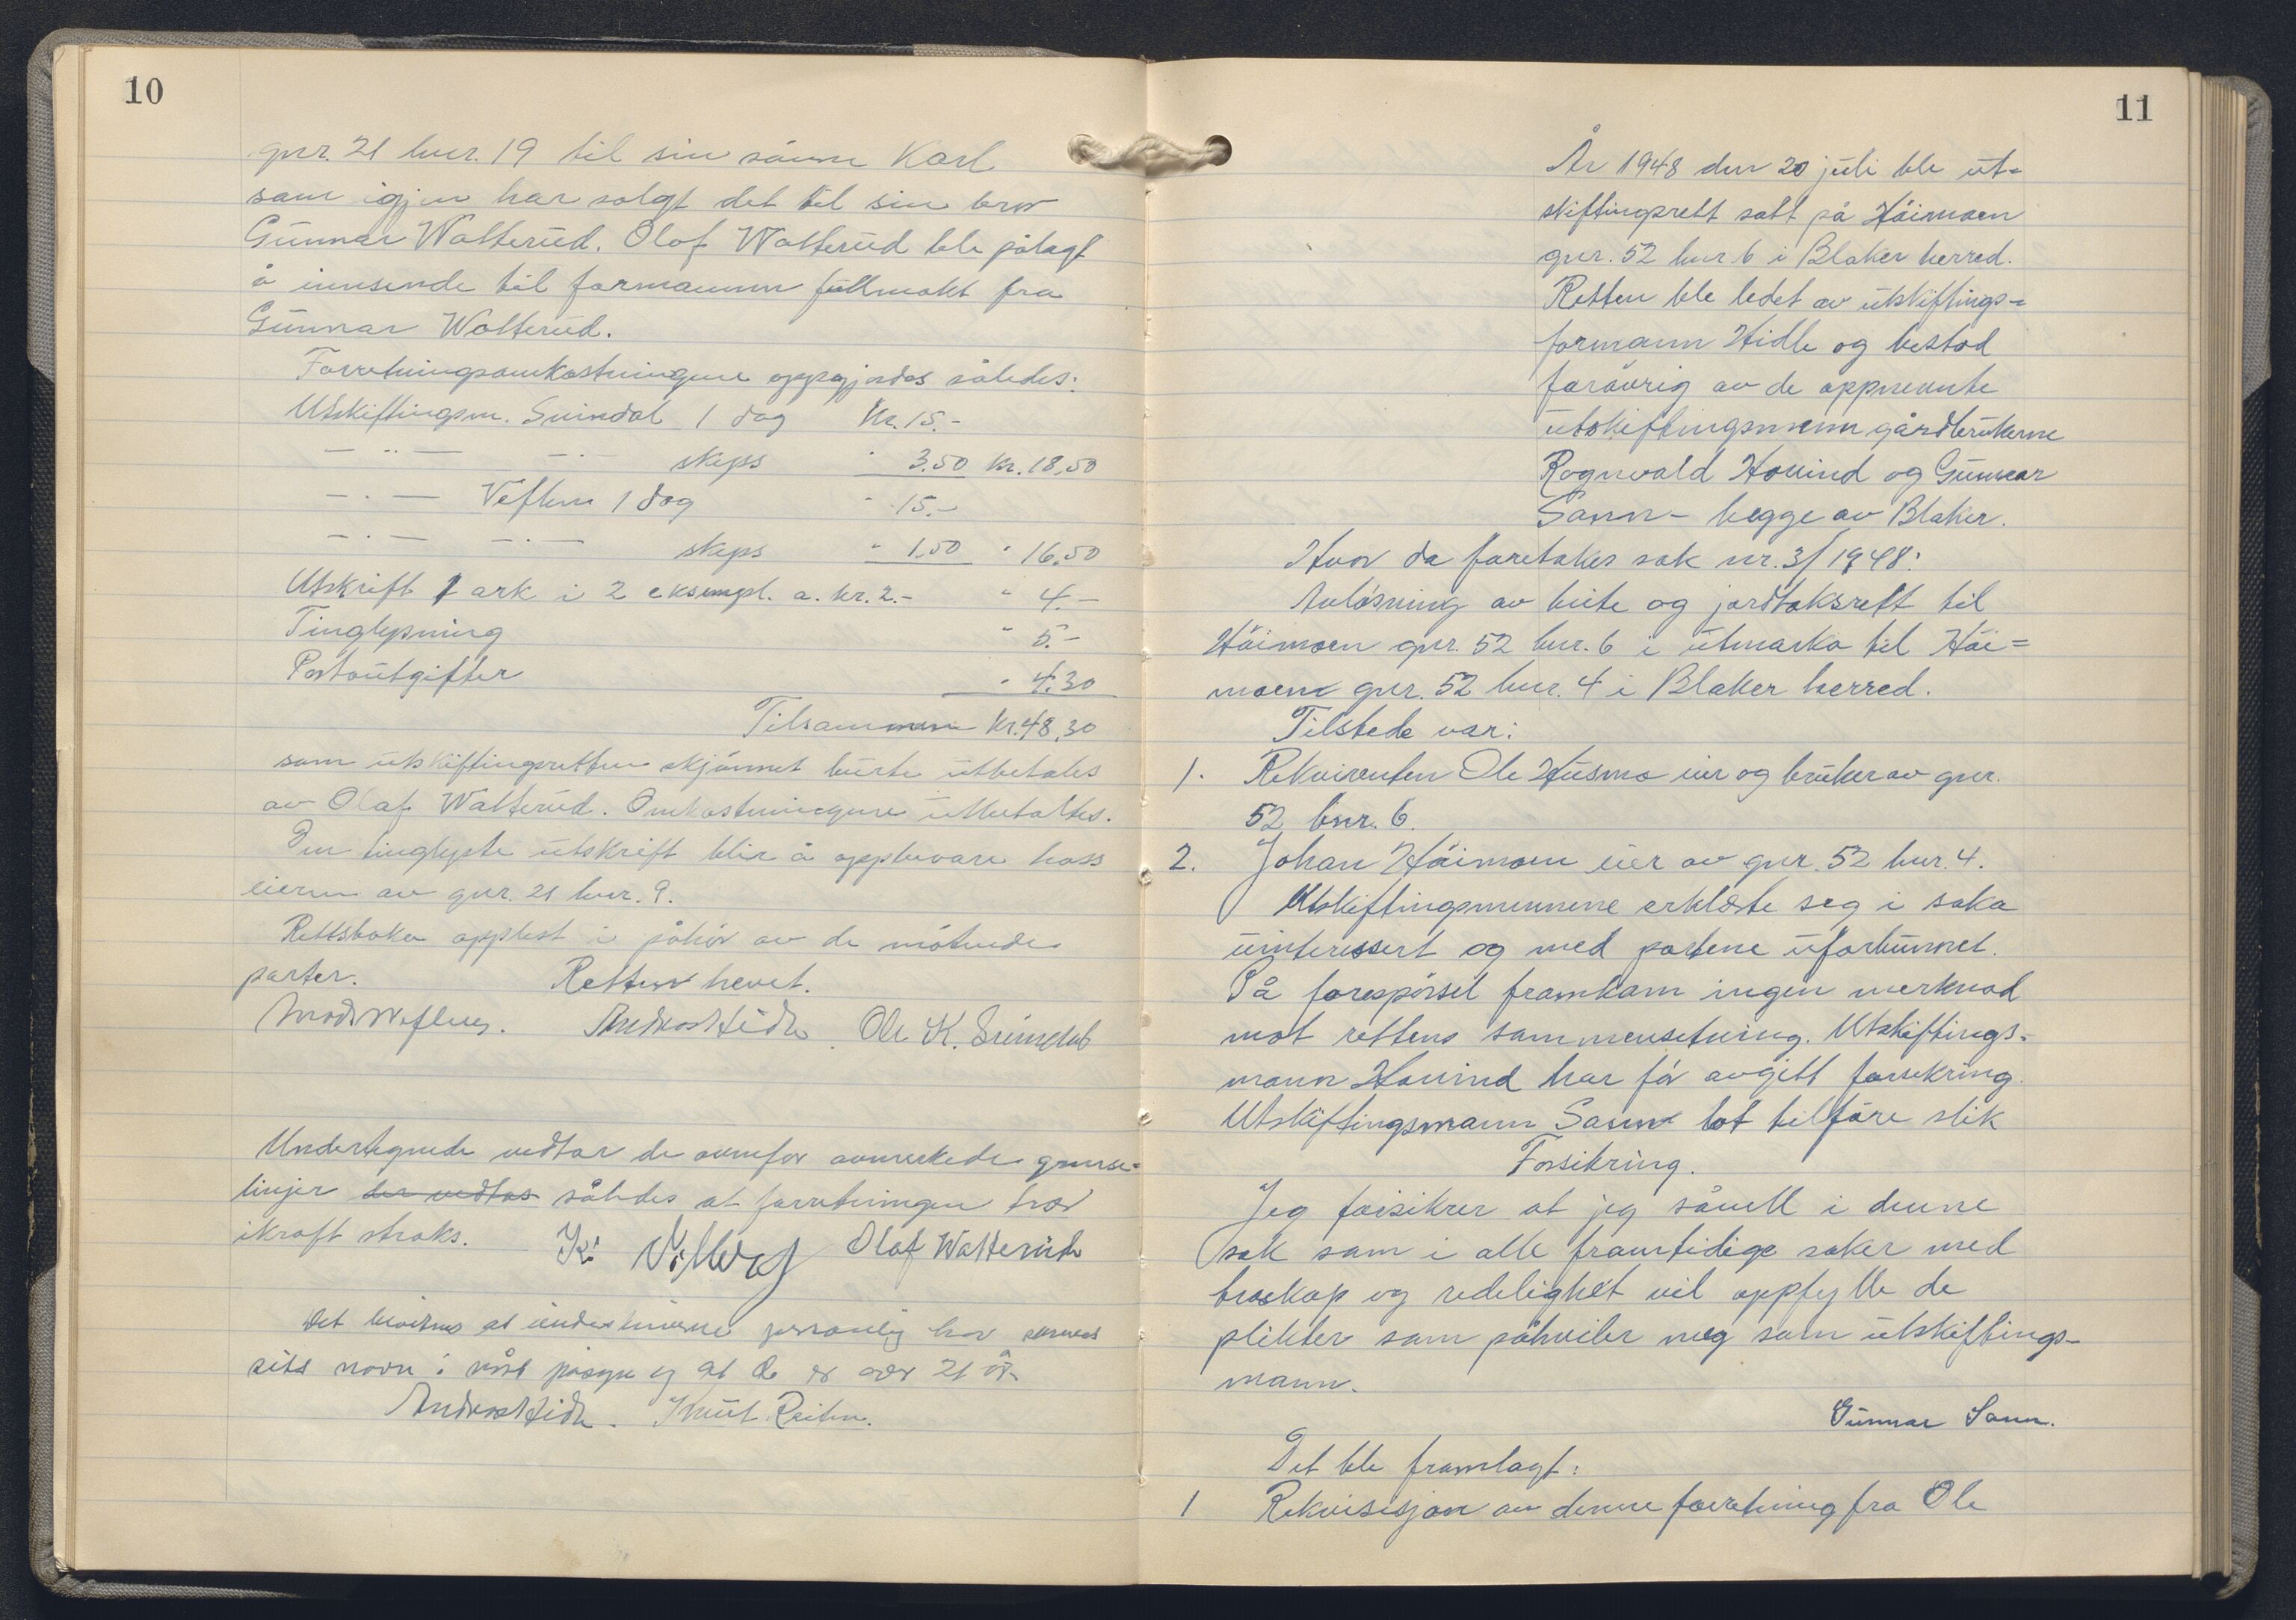 10
gnr. 21 bnr. 19 til sin sönn Karl
som igjen har solgt det til sin bror
Gunnar Watterud. Olaf Watterud ble pålagt
å innsende til formannen fullmakt fra
Gunnar Watterud.
Forretningsomkostningene oppgjordes således:
Utskiftingsm. Suindal 1 dag Kr. 15.-
— " — — " skyss " 3.50 kr. 18.50
— " — Veflen 1 dag " 15.-
— " — — " — skyss " 1.50 " 16.50
Utskrift 1 ark i 2 eksempl. a. kr. 2.- " 4.-
Tinglysning " 5.-
Portoutgifter " 4.30
Tilsammen kr. 48.30
som utskiftingsretten skjönnet burte utbetales
av Olaf Watterud. Omkostningene utbetaltes.
Den tinglyste utskrift blir å oppbevare hoss
eieren av gnr. 21 bnr. 9.
Rettsboka opplest i påhör av de mötende
parter. Retten hevet.
Mads Weflen. Andreas Hidle. Ole K. Suindal
Undertegnede vedtar de ovenfor avmerkede grense-
linjer der vedtas således at forretningen trær
ikraft straks. Olaf Watterud
Det bevitnes at underskriverne personlig har
sitt navn i vårt påsyn og at de er over 21 år
Andreas Hidle. Knut Reiten.
11
År 1948 den 20 juli ble ut-
skiftingsrett satt på Höimoen
gnr. 52 bnr. 6 i Blaker herred.
Retten ble ledet av utskiftings-
formann Hidle og bestod
forövrig av de oppnevnte
utskiftingsmenn gårdbrukerne
Rognvald Hovind og Gunnar
Sann - begge av Blaker.
Hvor da foretakes sak nr. 3/1948:
Avlösning av beite og jordtaksrett til
Höimoen gnr. 52 bnr. 6 i utmarka til Höi=
moen gnr. 52 bnr. 4 i Blaker herred.
Tilstede var:
1. Rekvirenten Ole Husmo eier og bruker av gnr.
52 bnr. 6.
2. Johan Höimoen eier av gnr. 52 bnr. 4.
Utskiftingsmennene erklærte seg i saka
uinteressert og med partene uforbunnet.
På forespörsel framkom ingen merknad
mot rettens sammensetning. Utskiftings-
mann Hovind har för avgitt forsikring.
Utskiftingsmann Sann lot tilföre slik
Forsikring.
Jeg forsikrer at jeg såvell i denne
sak som i alle framtidige saker med
troskap og redelighet vil oppfylle de
plikter som påhviler meg som utskiftings-
mann.
Gunnar Sann.
Det ble framlagt:
1 Rekvisisjon av denne forretning fra Ole